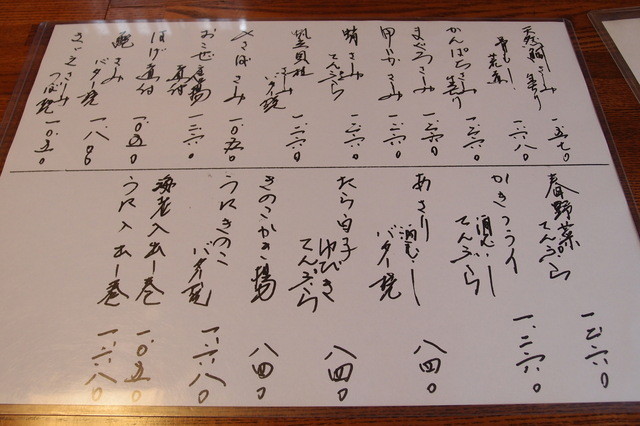 天然鯛さしみ 塩焼り 一、五七〇
骨むし 荒煮 一、六八〇
かんぱちさしみ 一、二六〇
まぐろさしみ 一、二六〇
甲いかさしみ 一、二六〇
蛸さしみ てんぷら 一、二六〇
さしみ バター焼 一、二六〇
〆さばさしみ 一、〇五〇
おこぜ 唐揚 煮付 一、二六〇
ほげ煮付 一、〇五〇
鮑さしみ バター焼 一、八〇〇
さざえさしみ つぼ焼 一、〇五〇
春野菜てんぷら 一、二六〇
かきフライ 酒むし てんぷら 一、二六〇
あさり 酒むし バター焼 八四〇
たら白子 ゆびき てんぷら 八四〇
きのこかき揚 八四〇
うにきのこ バター焼 一、六八〇
海老入出し巻 一、〇五〇
うに入出し巻 一、六八〇